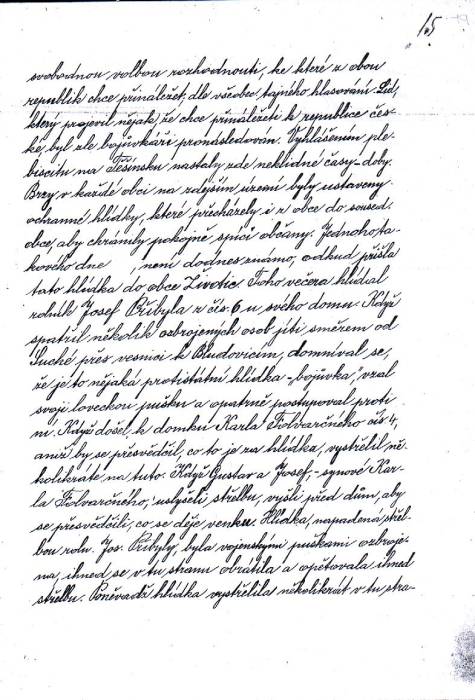 15
svobodnou volbou rozhodnouti, ke které z obou
republik chce přináležet, dle všeobec. tajného hlasování. Lid,
který projevil nějak, že chce přináležeti k republice čes-
ké, byl zle bojůvkáři pronásledován. Vyhlášením ple-
biscitu na Těšínsku nastaly zde neklidné časy-doby.
Brzy v každé obci na zdejším území byly ustaveny
ochranné hlídky, které přecházely i z obce do soused.
obce, aby chránily pokojně spící občany. Jednoho ta-
kového dne , není dodnes známo, odkud přišla
tato hlídka do obce Životic. Toho večera hlídal
rolník Josef Přibyla z čís. 6 u svého domu. Když
spatřil několik ozbrojených osob jíti směrem od
Suché přes vesnici k Bludovicím, domníval se,
že je to nějaká protistátní hlídka-„bojůvka", vzal
svoji loveckou pušku a opatrně postupoval proti
ní. Když došel k domku Karla Folvarčného čís 4,
aniž by se přesvědčil, co to je za hlídka, vystřelil ně-
kolikráte na tuto. Když Gustav a Josef,-synové Kar-
la Folvarčného, uslyšeli střelbu, vyšli před dům, aby
se přesvědčili, co se děje venku. Hlídka, napadena střel-
bou roln. Jos. Přibyly, byla vojenskými puškami ozbroje-
na, ihned se v tu stranu obrátila a opětovala ihned
střelbu. Poněvadž hlídka vystřelila několikrát v tu stra-